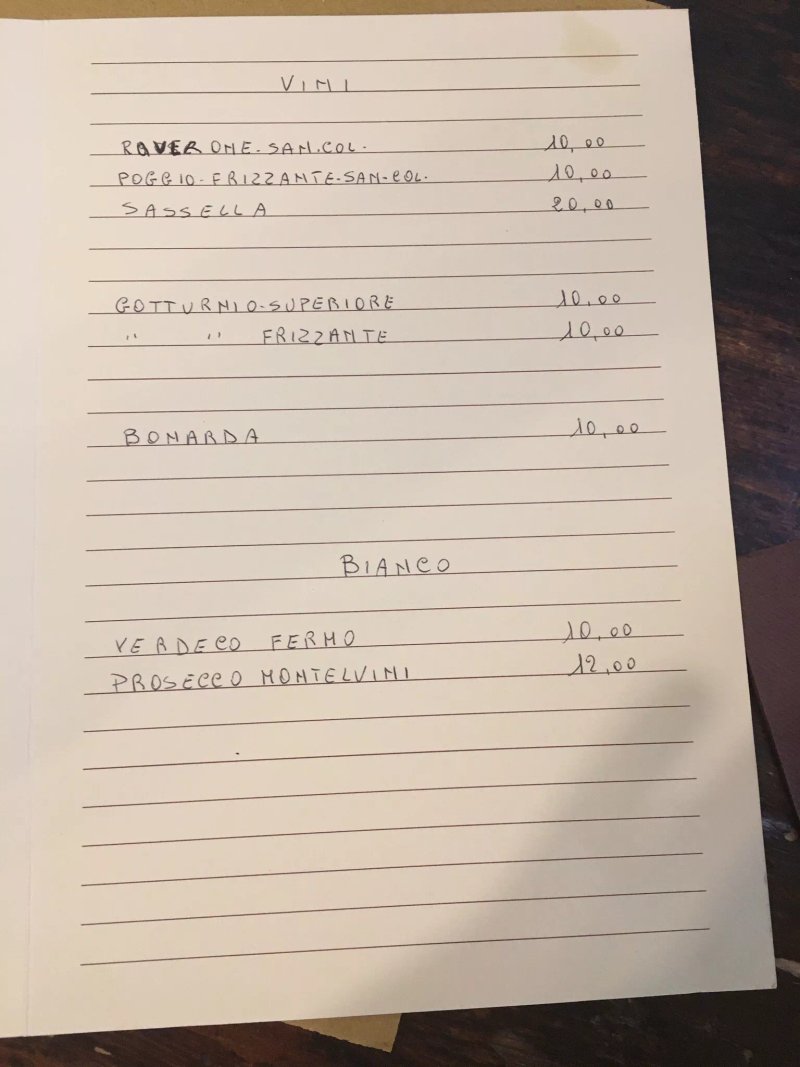 VINI
ROVERONE-SAN.COL. 10,00
POGGIO-FRIZZANTE-SAN-COL. 10,00
SASSELLA 20,00
GOTTURNIO-SUPERIORE 10,00
" " FRIZZANTE 10,00
BONARDA 10,00
BIANCO
VERDECO FERMO 10,00
PROSECCO MONTELVINI 12,00